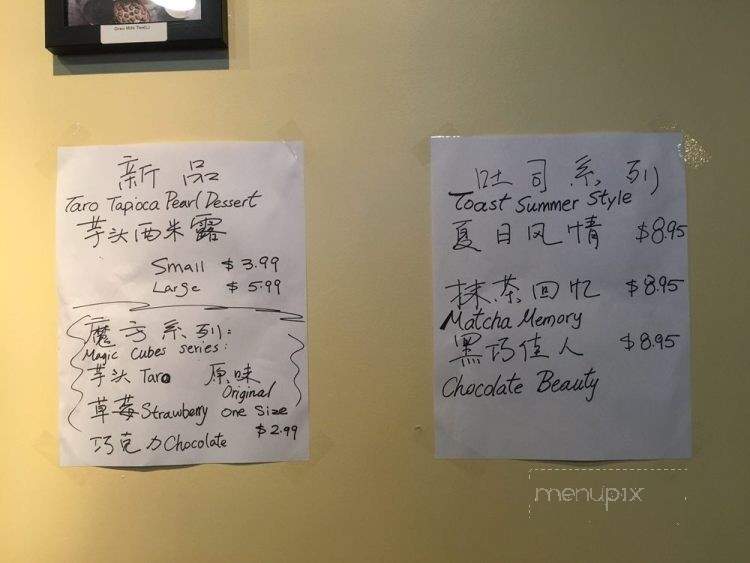 Oreo Milk Tea(L)
新品
Taro Tapioca Pearl Dessert
芋头西米露
Small $3.99
Large $5.99
魔方系列:
Magic Cubes series:
芋头 Taro 原味
Original
草莓 Strawberry one Size
巧克力 Chocolate $2.99
吐司系列
Toast Summer Style
夏日风情 $8.95
抹茶回忆 $8.95
Matcha Memory
黑巧佳人 $8.95
Chocolate Beauty
menupix